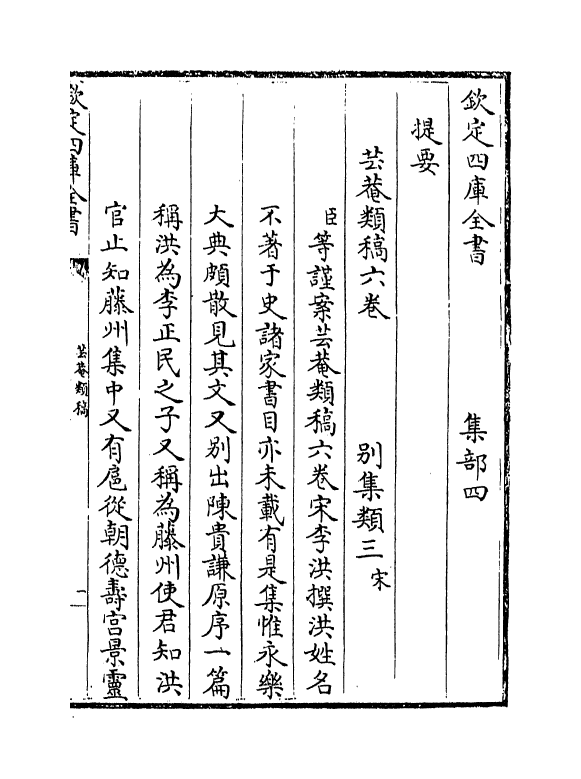 欽定四庫全書　集部四
提要
芸菴類稿六卷　别集類三宋
臣等謹案芸菴類稿六卷宋李洪撰洪姓名
不著于史諸家書目亦未載有是集惟永樂
大典頗散見其文又别出陳貴謙原序一篇
稱洪為李正民之子又稱為藤州使君知洪
官止知藤州集中又有扈從朝德壽宫景靈
欽定四庫全書
芸菴類稿
一